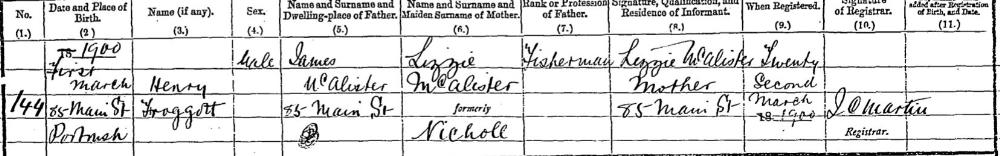 No. Date and Place of Birth. Name (if any). Sex. Name and Surname and Dwelling-place of Father. Name and Surname and Maiden Surname of Mother. Rank or Profession of Father. Signature, Qualification, and Residence of Informant. When Registered. Signature of Registrar. added after Registration of Birth, and Date.
(1.) (2.) (3.) (4.) (5.) (6.) (7.) (8.) (9.) (10.) (11.)
18 1900
First Male James Lizzie Fisherman Lizzie McAlister Twenty
March Henry McAlister McAlister Mother Second
144 85 Main St Froggott 85 Main St formerly 85 Main St March 18 1900 J O Martin
Portrush Nicholl Registrar.